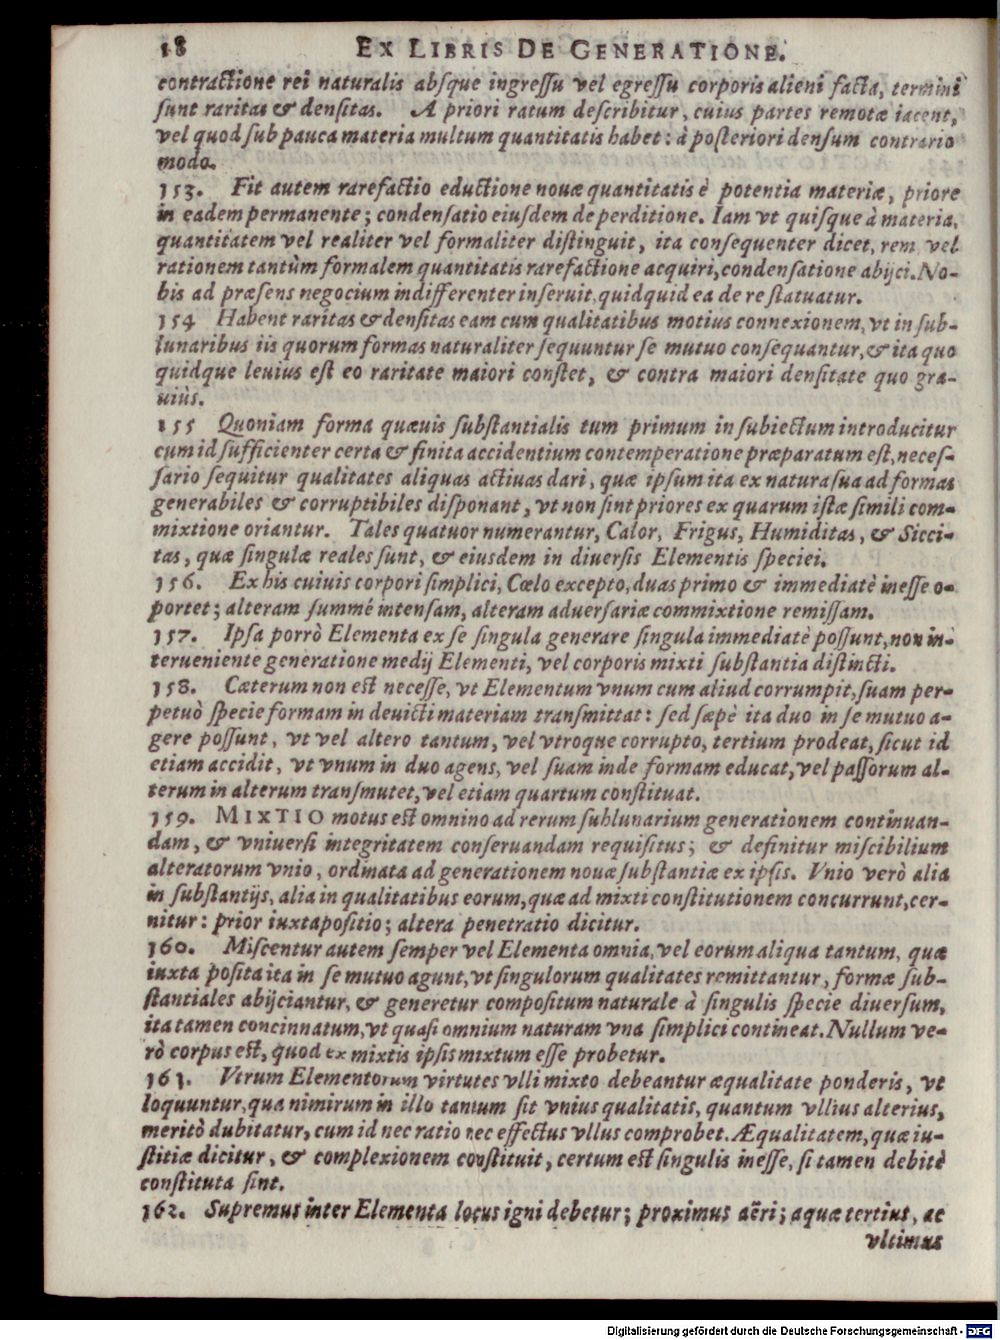 18 EX LIBRIS DE GENERATIONE.
contractione rei naturalis absque ingressu vel egressu corporis alieni facta, termini
sunt raritas & densitas. A priori ratum describitur, cuius partes remotæ iacent,
vel quod sub pauca materia multum quantitatis habet: à posteriori densum contrario
modo.
153. Fit autem rarefactio eductione nouæ quantitatis è potentia materiæ, priore
in eadem permanente; condensatio eiusdem deperditione. Iam vt quisque à materia,
quantitatem vel realiter vel formaliter distinguit, ita consequenter dicet, rem vel
rationem tantùm formalem quantitatis rarefactione acquiri, condensatione abijci. No-
bis ad præsens negocium indifferenter inseruit, quidquid ea de re statuatur.
154 Habent raritas & densitas eam cum qualitatibus motius connexionem, vt in sub-
lunaribus iis quorum formas naturaliter sequuntur se mutuo consequantur, & ita quo
quidque leuius est eo raritate maiori constet, & contra maiori densitate quo gra-
uiùs.
155 Quoniam forma quæuis substantialis tum primum in subiectum introducitur
cum id sufficienter certa & finita accidentium contemperatione præparatum est, neces-
sario sequitur qualitates aliquas actiuas dari, quæ ipsum ita ex natura sua ad formas
generabiles & corruptibiles disponant, vt non sint priores ex quarum istæ simili com-
mixtione oriantur. Tales quatuor numerantur, Calor, Frigus, Humiditas, & Sicci-
tas, quæ singulæ reales sunt, & eiusdem in diuersis Elementis speciei.
156. Ex his cuiuis corpori simplici, Cœlo excepto, duas primo & immediatè inesse o-
portet; alteram summé intensam, alteram aduersariæ commixtione remissam.
157. Ipsa porrò Elementa ex se singula generare singula immediatè possunt, non in-
terueniente generatione medij Elementi, vel corporis mixti substantia distincti.
158. Cæterum non est necesse, vt Elementum vnum cum aliud corrumpit, suam per-
petuò specie formam in deuicti materiam transmittat: sed sæpè ita duo in se mutuo a-
gere possunt, vt vel altero tantum, vel vtroque corrupto, tertium prodeat, sicut id
etiam accidit, vt vnum in duo agens, vel suam inde formam educat, vel passorum al-
terum in alterum transmutet, vel etiam quartum constituat.
159. MIXTIO motus est omnino ad rerum suhlunarium generationem continuan-
dam, & vniuersi integritatem conseruandam requisitus; & definitur miscibilium
alteratorum vnio, ordinata ad generationem nouæ substantiæ ex ipsis. Vnio verò alia
in substantijs, alia in qualitatibus eorum, quæ ad mixti constitutionem concurrunt, cer-
nitur: prior iuxtapositio; altera penetratio dicitur.
160. Miscentur autem semper vel Elementa omnia, vel eorum aliqua tantum, quæ
iuxta posita ita in se mutuo agunt, vt singulorum qualitates remittantur, formæ sub-
stantiales abijciantur, & generetur compositum naturale à singulis specie diuersum,
ita tamen concinnatum, vt quasi omnium naturam vna simplici contineat. Nullum ve-
rò corpus est, quod ex mixtis ipsis mixtum esse probetur.
161. Vtrum Elementorum virtutes vlli mixto debeantur æqualitate ponderis, vt
loquuntur, qua nimirum in illo tantum sit vnius qualitatis, quantum vllius alterius,
meritò dubitatur, cum id nec ratio nec effectus vllus comprobet. Æqualitatem, quæ iu-
stitiæ dicitur, & complexionem constituit, certum est singulis inesse, si tamen debitè
constituta sint.
162. Supremus inter Elementa locus igni debetur; proximus aëri; aquæ tertius, ac
vltimus
Digitalisierung gefördert durch die Deutsche Forschungsgemeinschaft - DFG